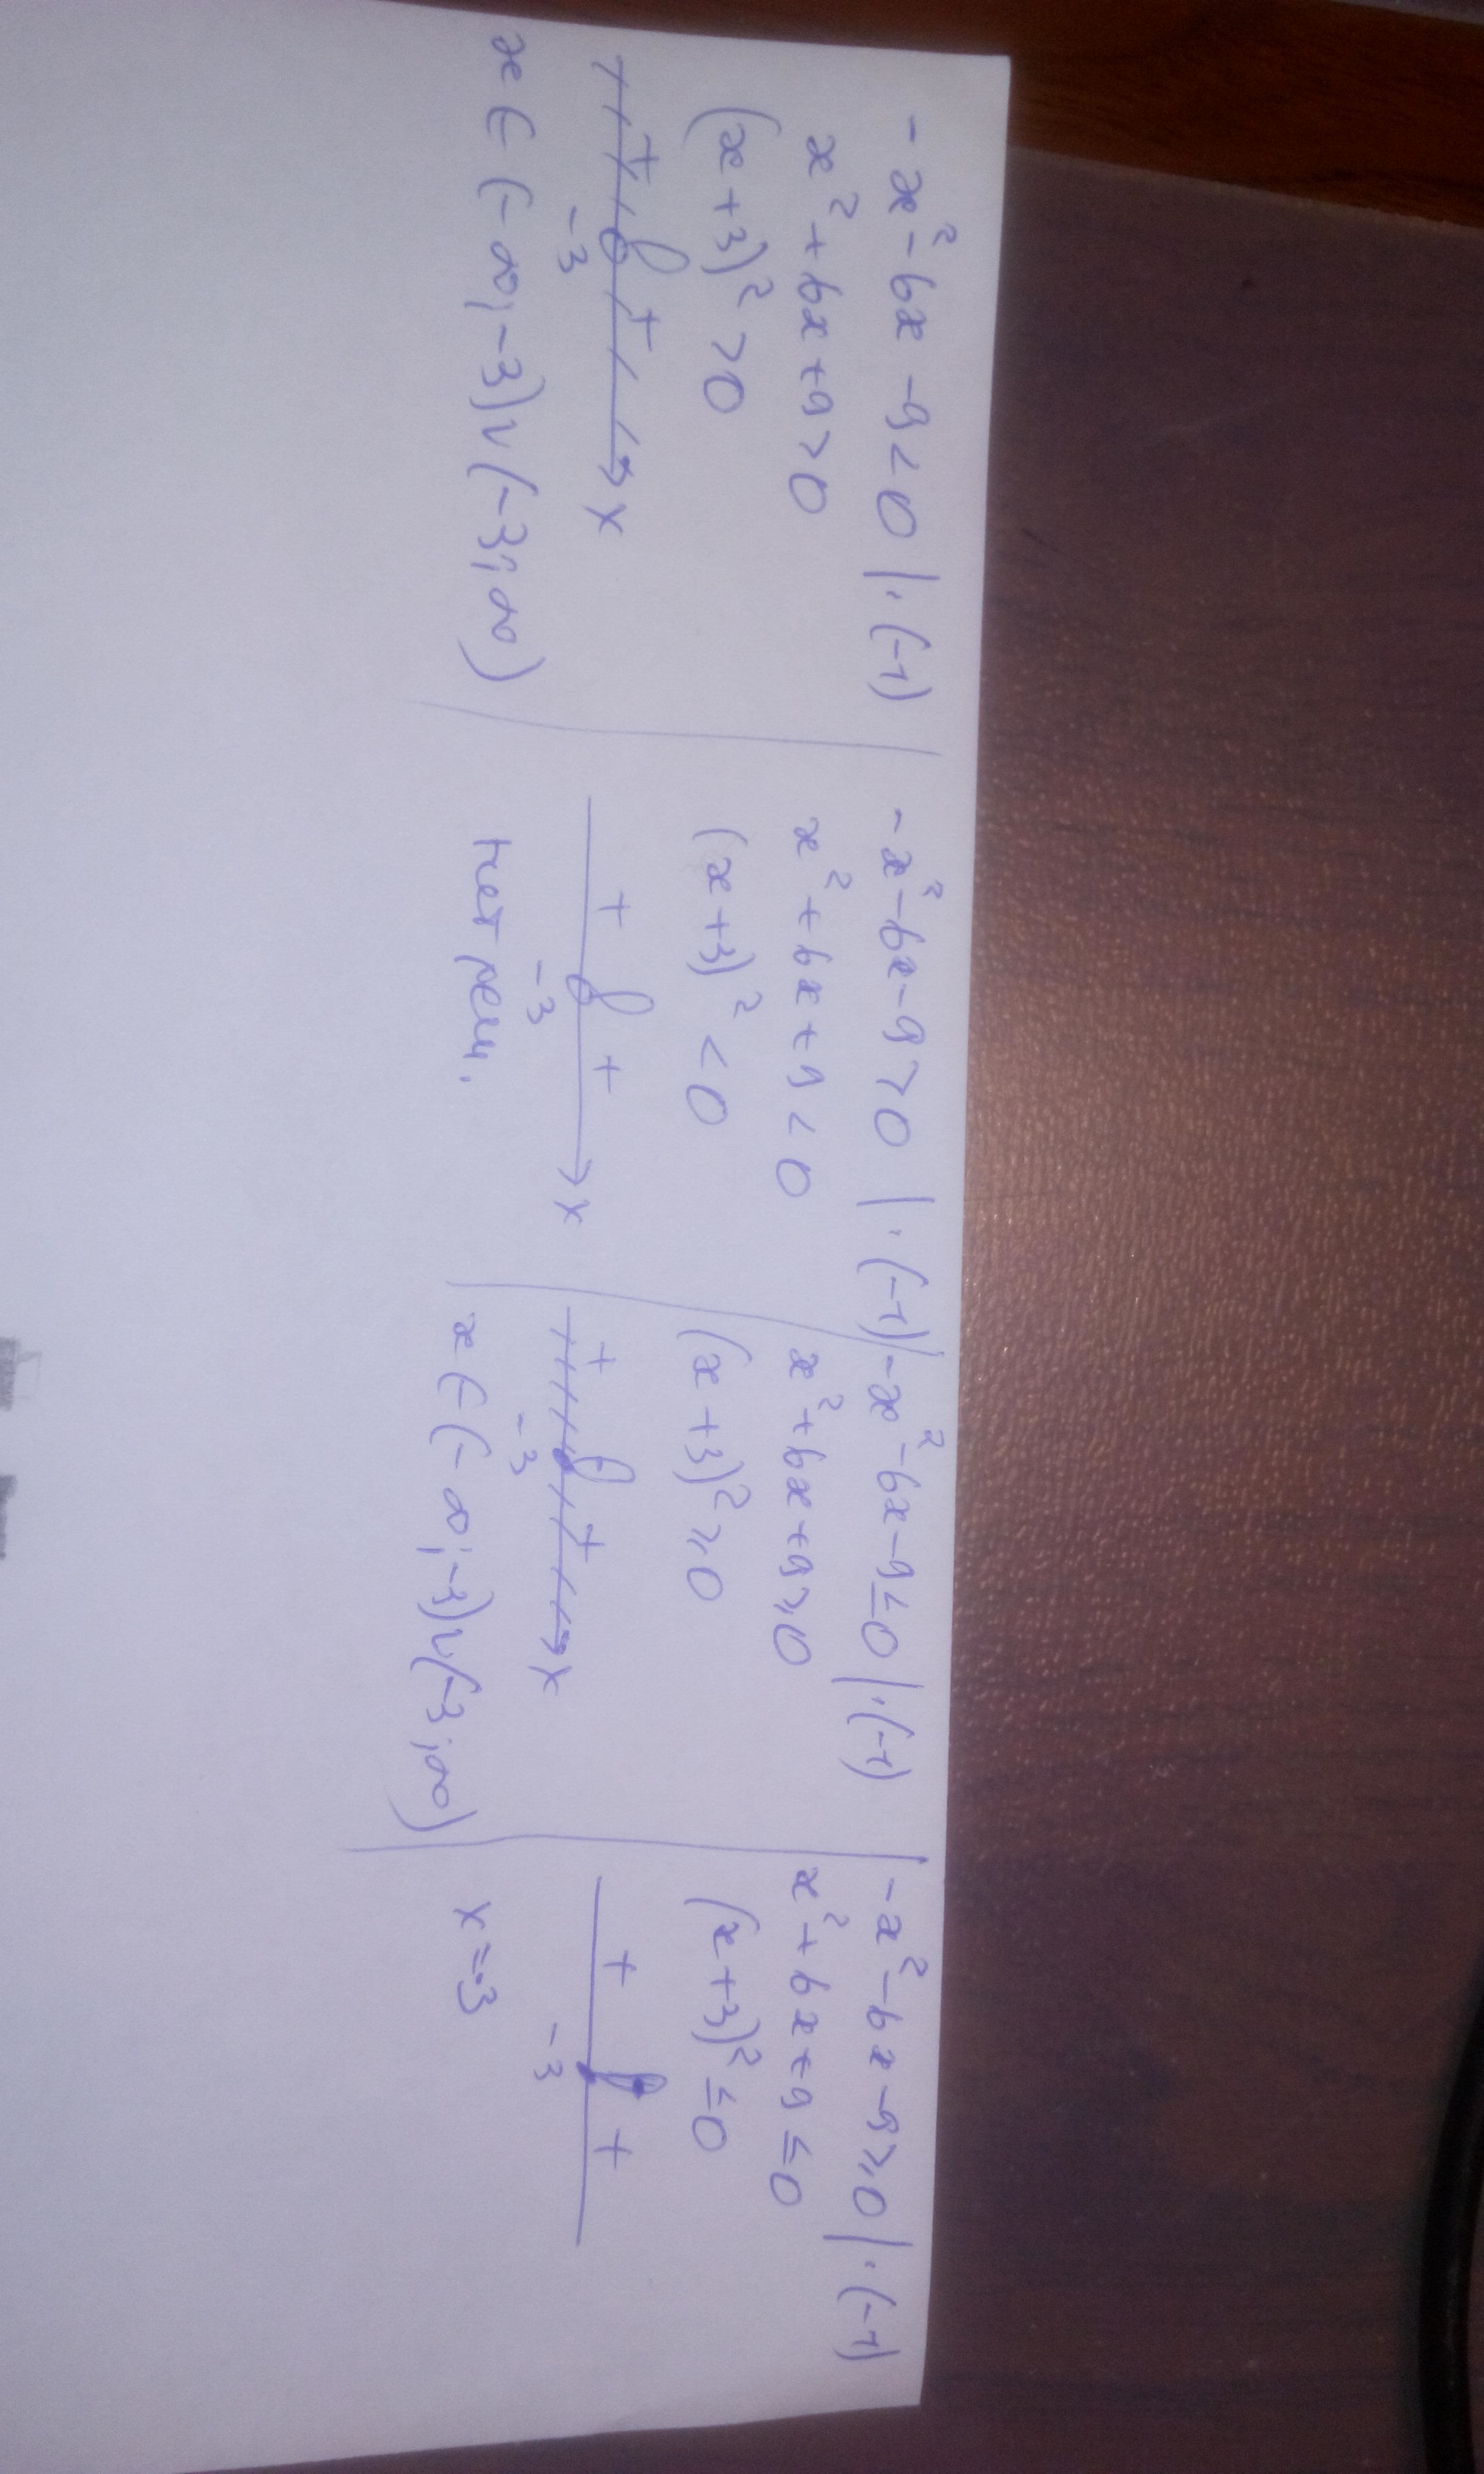 -x² - 6x - 9 < 0 | · (-1)
x² + 6x + 9 > 0
(x + 3)² > 0
+ +
-3 x
x ∈ (-∞; -3) ∪ (-3; ∞)
-x² - 6x - 9 > 0 | · (-1)
x² + 6x + 9 < 0
(x + 3)² < 0
+ +
-3 x
нет реш.
-x² - 6x - 9 ≤ 0 | · (-1)
x² + 6x + 9 ≥ 0
(x + 3)² ≥ 0
+ +
-3 x
x ∈ (-∞; -3) ∪ (-3; ∞)
-x² - 6x - 9 ≥ 0 | · (-1)
x² + 6x + 9 ≤ 0
(x + 3)² ≤ 0
+ +
-3
x = -3